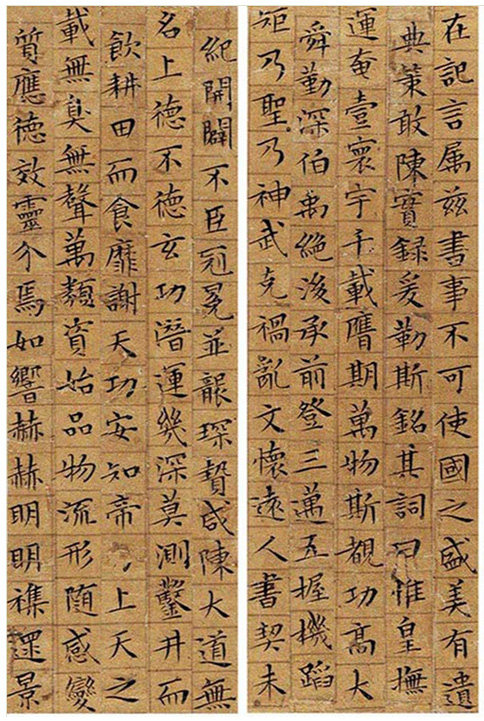 在記言属兹書事不可使國之盛美有遺
典策敢陳實録爰勒斯銘其詞曰惟皇撫
運奄壹寰宇千載膺期萬物斯覩功髙大
舜勤深伯禹絶後承前登三邁五握機蹈
矩乃聖乃神武克禍亂文懷遠人書契未
紀開闢不臣冠冕並襲琛贄咸陳大道無
名上徳不徳玄功潛運幾深莫測鑿井而
飲耕田而食靡謝天功安知帝上天之
載無臭無聲萬類資始品物流形随感變
質應徳效靈介焉如響赫赫明明襍遝景